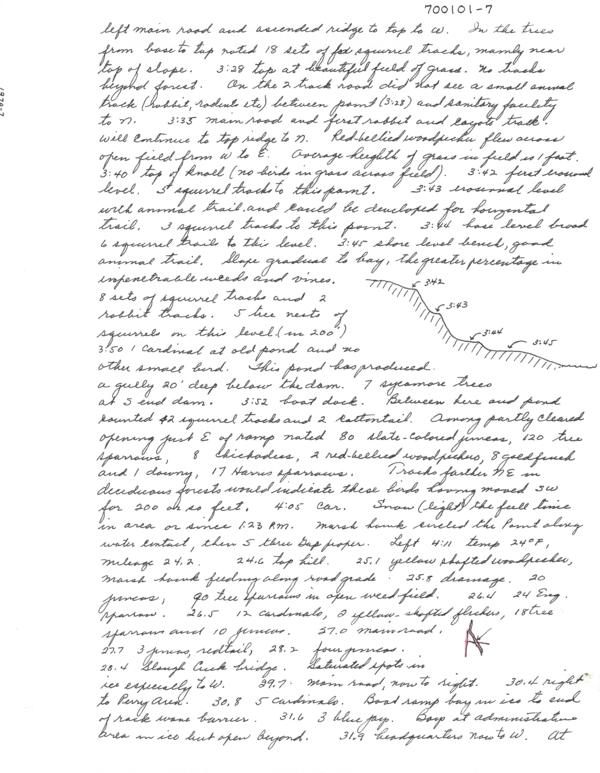 700101-7
left main road and ascended ridge to top to W. In the trees
from base to top noted 18 sets of fox squirrel tracks, mainly near
top of slope. 3:28 top at beautiful field of grass. No tracks
beyond forest. On the 2 track road did not see a small animal
track (rabbit, rodent etc) between point (3:28) and sanitary facility
to N. 3:35 main road and first rabbit and coyote track.
Will continue to top ridge to N. Red-bellied woodpecker flew across
open field from W to E. Average heighth of grass in field is 1 foot.
3:40 top of knoll (no birds in grass across field). 3:42 first erosional
level. 5 squirrel tracks to this point. 3:43 erosional level
with animal trail and could be developed for horizontal
trail. 3 squirrel tracks to this point. 3:44 base level broad
6 squirrel trails to this level. 3:45 shore level bench, good
animal trail. Slope gradual to bay, the greater percentage in
impenetrable weeds and vines.
8 sets of squirrel tracks and 2
rabbit tracks. 5 tree nests of
squirrels on this level (in 200')
3:50 1 cardinal at old pond and no
other small bird. This pond has produced
a gully 20' deep below the dam. 7 sycamore trees
at S end dam. 3:52 boat dock. Between here and pond
counted 42 squirrel tracks and 2 cottontail. Among partly cleared
opening just E of ramp noted 80 slate-colored juncos, 120 tree
sparrows, 8 chickadees, 2 red-bellied woodpeckers, 8 goldfinch
and 1 downy, 17 Harris sparrows. Tracks farther NE in
deciduous forests would indicate these birds having moved SW
for 200 or so feet. 4:05 car. Snow (light) the full time
in area or since 1:23 P.M. Marsh hawk circled the Point along
water contact, then 5 three Gap proper. Left 4:11 temp 24°F,
mileage 24.2. 24.6 top hill. 25.1 yellow shafted woodpecker,
marsh hawk feeding along road grade. 25.8 drainage. 20
juncos, 90 tree sparrows in open weed field. 26.4 24 Eng.
sparrow. 26.5 12 cardinals, 2 yellow-shafted flickers, 18 tree
sparrows and 10 juncos. 27.0 main road.
27.7 3 juncos, redtail, 28.2 four juncos.
28.4 Slough Creek bridge. Saturated spots in
ice especially to W. 29.7 main road, now to right. 30.4 right
to Perry Area. 30.8 5 cardinals. Boat ramp bay in ice to end
of rock wave barrier. 31.6 3 blue jay. Bay at administrative
area in ice but open beyond. 31.9 headquarters now to W. At
3:42
3:43
3:44
3:45